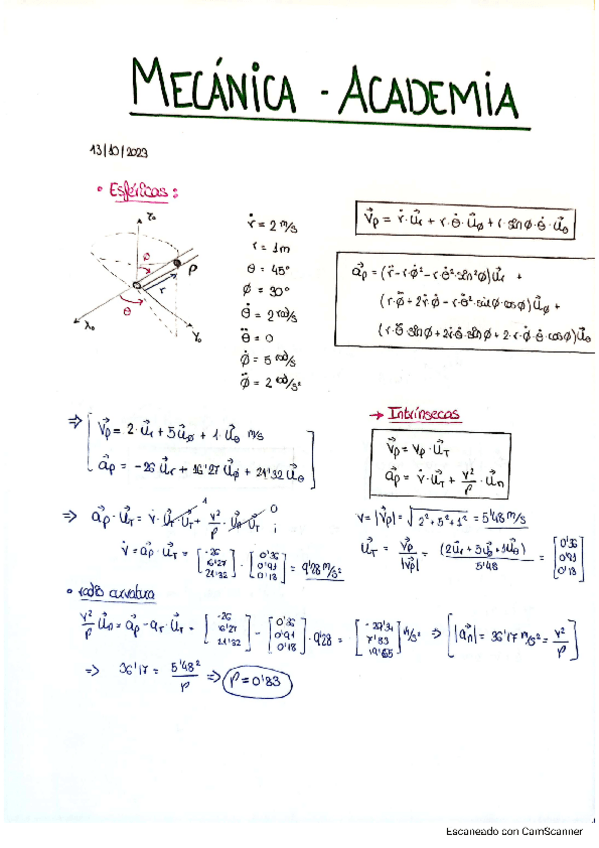 MECÁNICA - ACADEMIA
13/10/2023
• Esféricas:
z₀
ϕ
P
r
θ
x₀
y₀
ṙ = 2 m/s
r = 1m
θ = 45°
ϕ = 30°
θ̇ = 2 rad/s
θ̈ = 0
ϕ̇ = 5 rad/s
ϕ̈ = 2 rad/s²
v⃗p = ṙ·u⃗r + r·θ̇·u⃗ϕ + r sinϕ·θ̇·u⃗θ
a⃗p = (r̈ - r·ϕ̇² - r·θ̇²·sin²ϕ)u⃗r +
(r·ϕ̈ + 2ṙ·ϕ̇ - r·θ̇²·sinϕ·cosϕ)u⃗ϕ +
(r·θ̈ sinϕ + 2ṙθ̇·sinϕ + 2·r·ϕ̇·θ̇·cosϕ)u⃗θ
⇒ v⃗p = 2·u⃗r + 5u⃗ϕ + 1·u⃗θ m/s
a⃗p = -26 u⃗r + 16'27 u⃗ϕ + 21'32 u⃗θ
→ Intrínsecas
v⃗p = vp·u⃗T
a⃗p = v̇·u⃗T + v²/ρ·u⃗n
⇒ a⃗p·u⃗T = v̇·u⃗T·u⃗T + v²/ρ·u⃗n·u⃗T ;
1
0
v̇ = a⃗p·u⃗T = [-26 16'27 21'32]·[0'36 0'91 0'18] = 9'28 m/s²
v = |v⃗p| = √2²+5²+1² = 5'48 m/s
u⃗T = v⃗p/|v⃗p| = (2u⃗r + 5u⃗ϕ + 1u⃗θ)/5'48 = [0'36 0'91 0'18]
• radio curvatura
v²/ρ u⃗n = a⃗p - aT·u⃗T = [-26 16'27 21'32] - [0'36 0'91 0'18]·9'28 = [-29'31 7'83 19'65] m/s² ⇒ [|a⃗n| = 36'17 m/s² = v²/ρ]
⇒ 36'17 = 5'48²/ρ ⇒ ρ = 0'83
Escaneado con CamScanner